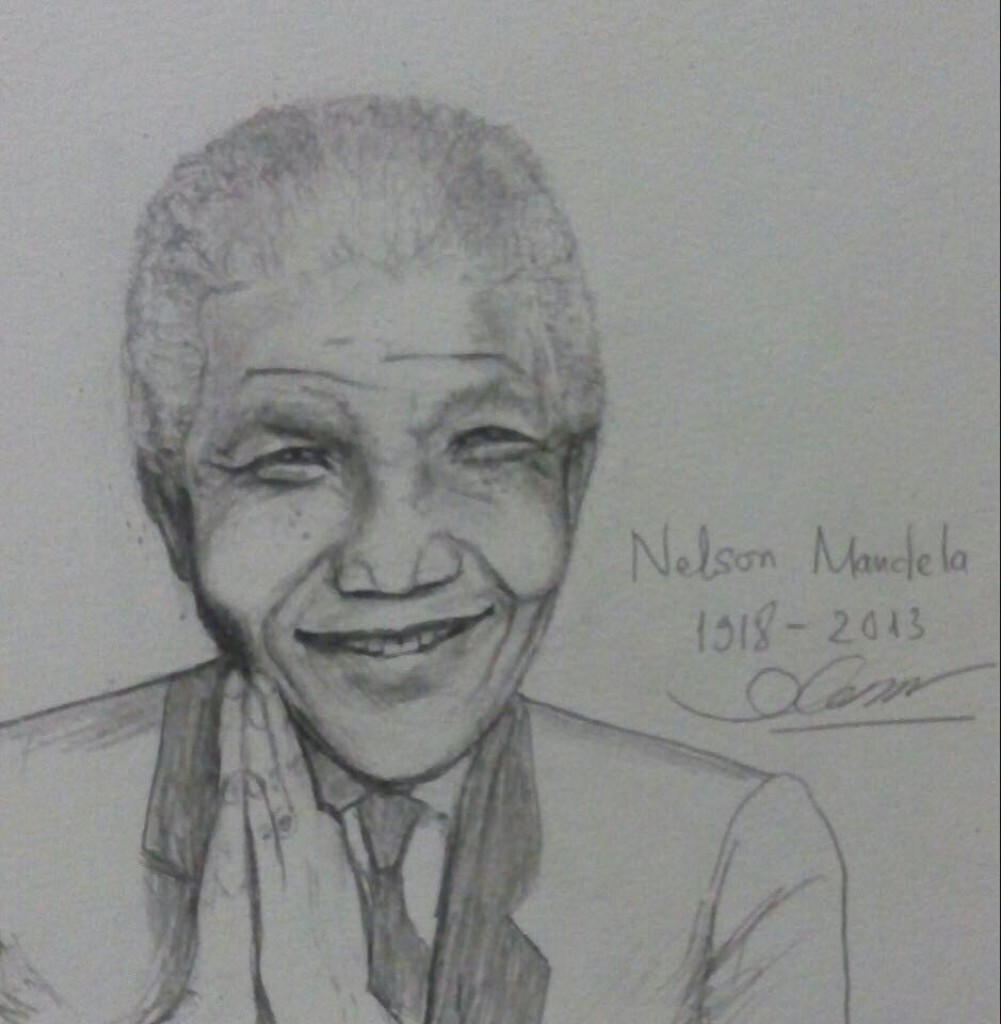 Nelson Mandela
1918 - 2013